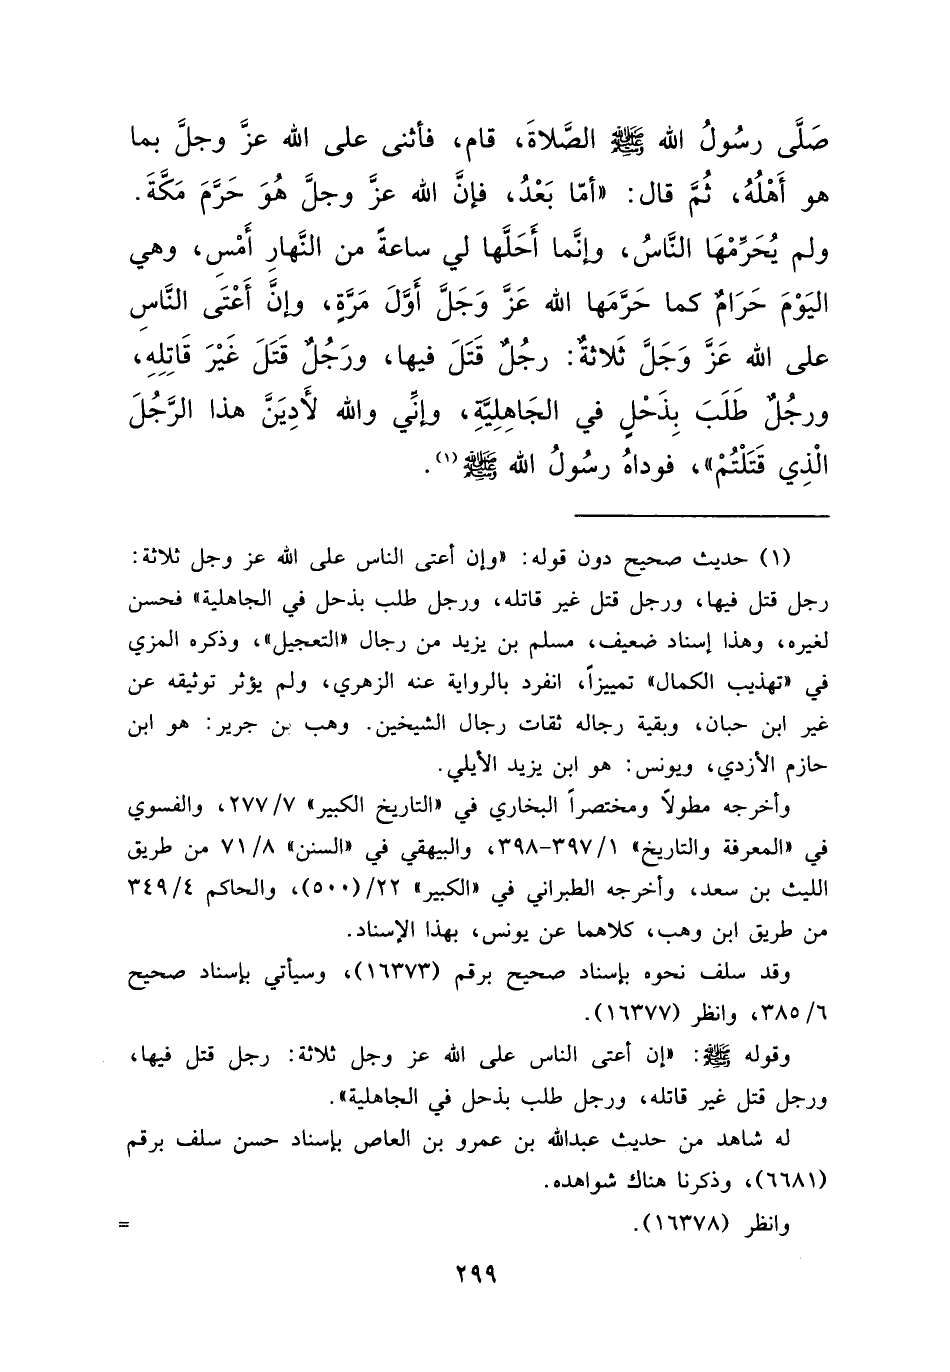 صَلَّى رسُولُ الله ﷺ الصَّلاةَ، قام، فأثنى على الله عزَّ وجلَّ بما
هو أَهْلُهُ، ثُمَّ قال: «أمّا بَعْدُ، فإنَّ الله عزَّ وجلَّ هُوَ حَرَّمَ مَكَّةَ.
ولم يُحَرِّمْهَا النَّاسُ، وإنَّما أَحَلَّها لي ساعةً من النَّهارِ أَمْسِ، وهي
اليَوْمَ حَرَامٌ كما حَرَّمَها الله عَزَّ وَجَلَّ أوَّلَ مَرَّةٍ، وإنَّ أَعْتَى النَّاسِ
على الله عَزَّ وَجَلَّ ثَلاثةٌ: رجُلٌ قَتَلَ فيها، ورَجُلٌ قَتَلَ غَيْرَ قَاتِلِهِ،
ورجُلٌ طَلَبَ بِذَحْلٍ في الجَاهِلِيَّةِ، وإنِّي والله لأَدِيَنَّ هذا الرَّجُلَ
الْذِي قَتَلْتُمْ»، فوداهُ رسُولُ الله ﷺ (١).
(١) حديث صحيح دون قوله: «وإن أعتى الناس على الله عز وجل ثلاثة:
رجل قتل فيها، ورجل قتل غير قاتله، ورجل طلب بذحل في الجاهلية» فحسن
لغيره، وهذا إسناد ضعيف، مسلم بن يزيد من رجال «التعجيل»، وذكره المزي
في «تهذيب الكمال» تمييزاً، انفرد بالرواية عنه الزهري، ولم يؤثر توثيقه عن
غير ابن حبان، وبقية رجاله ثقات رجال الشيخين. وهب بن جرير: هو ابن
حازم الأزدي، ويونس: هو ابن يزيد الأيلي.
وأخرجه مطولاً ومختصراً البخاري في «التاريخ الكبير» ٢٧٧/٧، والفسوي
في «المعرفة والتاريخ» ٣٩٧/١-٣٩٨، والبيهقي في «السنن» ٧١/٨ من طريق
الليث بن سعد، وأخرجه الطبراني في «الكبير» ٢٢/(٥٠٠)، والحاكم ٣٤٩/٤
من طريق ابن وهب، كلاهما عن يونس، بهذا الإسناد.
وقد سلف نحوه بإسناد صحيح برقم (١٦٣٧٣)، وسيأتي بإسناد صحيح
٣٨٥/٦، وانظر (١٦٣٧٧).
وقوله ﷺ: «إن أعتى الناس على الله عز وجل ثلاثة: رجل قتل فيها،
ورجل قتل غير قاتله، ورجل طلب بذحل في الجاهلية».
له شاهد من حديث عبدالله بن عمرو بن العاص بإسناد حسن سلف برقم
(٦٦٨١)، وذكرنا هناك شواهده.
وانظر (١٦٣٧٨). =
٢٩٩